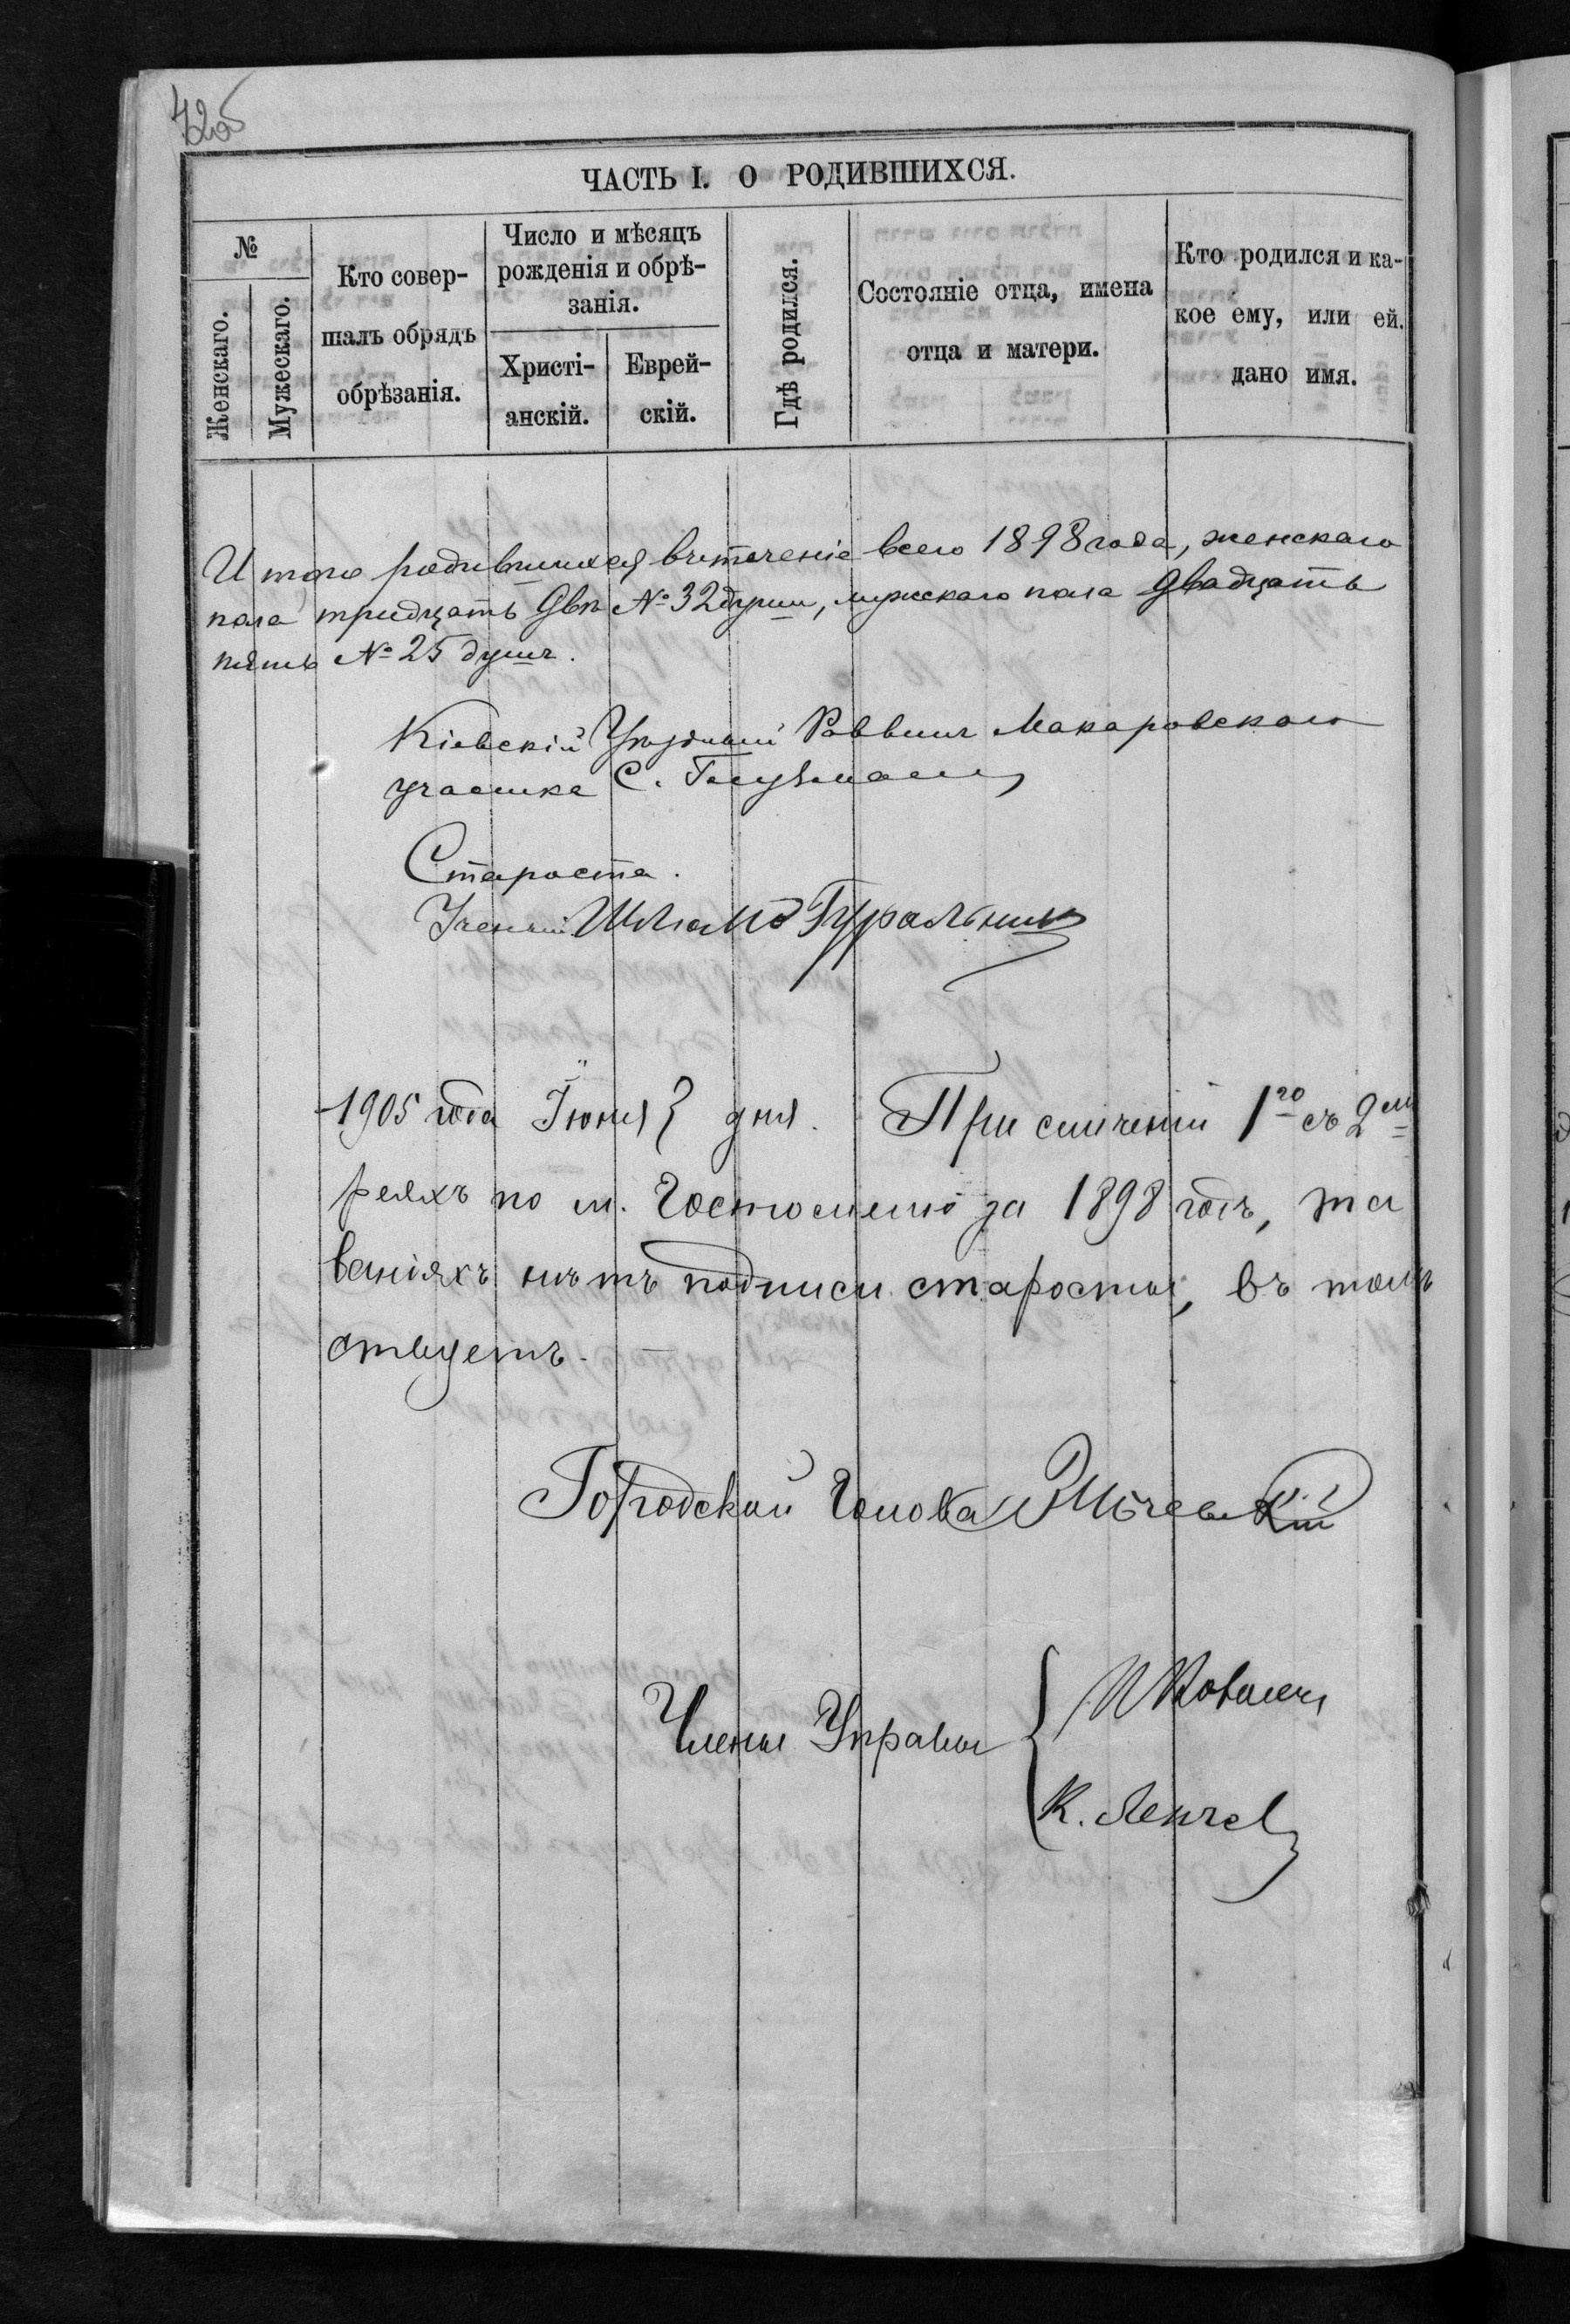 ЧАСТЬ I. О РОДИВШИХСЯ.
№
Женскаго.
Мужескаго.
Кто совер-
шалъ обрядъ
обрѣзанія.
Число и мѣсяцъ
рожденія и обрѣ-
занія.
Христі-
анскій.
Еврей-
скій.
Гдѣ родился.
Состояніе отца, имена
отца и матери.
Кто родился и ка-
кое ему, или ей.
дано имя.
Итого родившихся въ теченіе всего 1898 года, женскаго
пола тридцать двѣ № 32 души, мужскаго пола двадцать
пять № 25 душъ.
Кіевскій Уѣздный Раввинъ Макаровскаго
участка С.
Староста.
Ученый Шлиомо Гуральник
1905 года Іюня дня. При сличеніи 1го съ 2мъ
реяхъ по м. Гостомелю за 1898 годъ, та
ваніяхъ нѣтъ подписи старосты, въ томъ
ствуетъ.
Городской Голова
Члены Управы
И Ковалевъ
К.